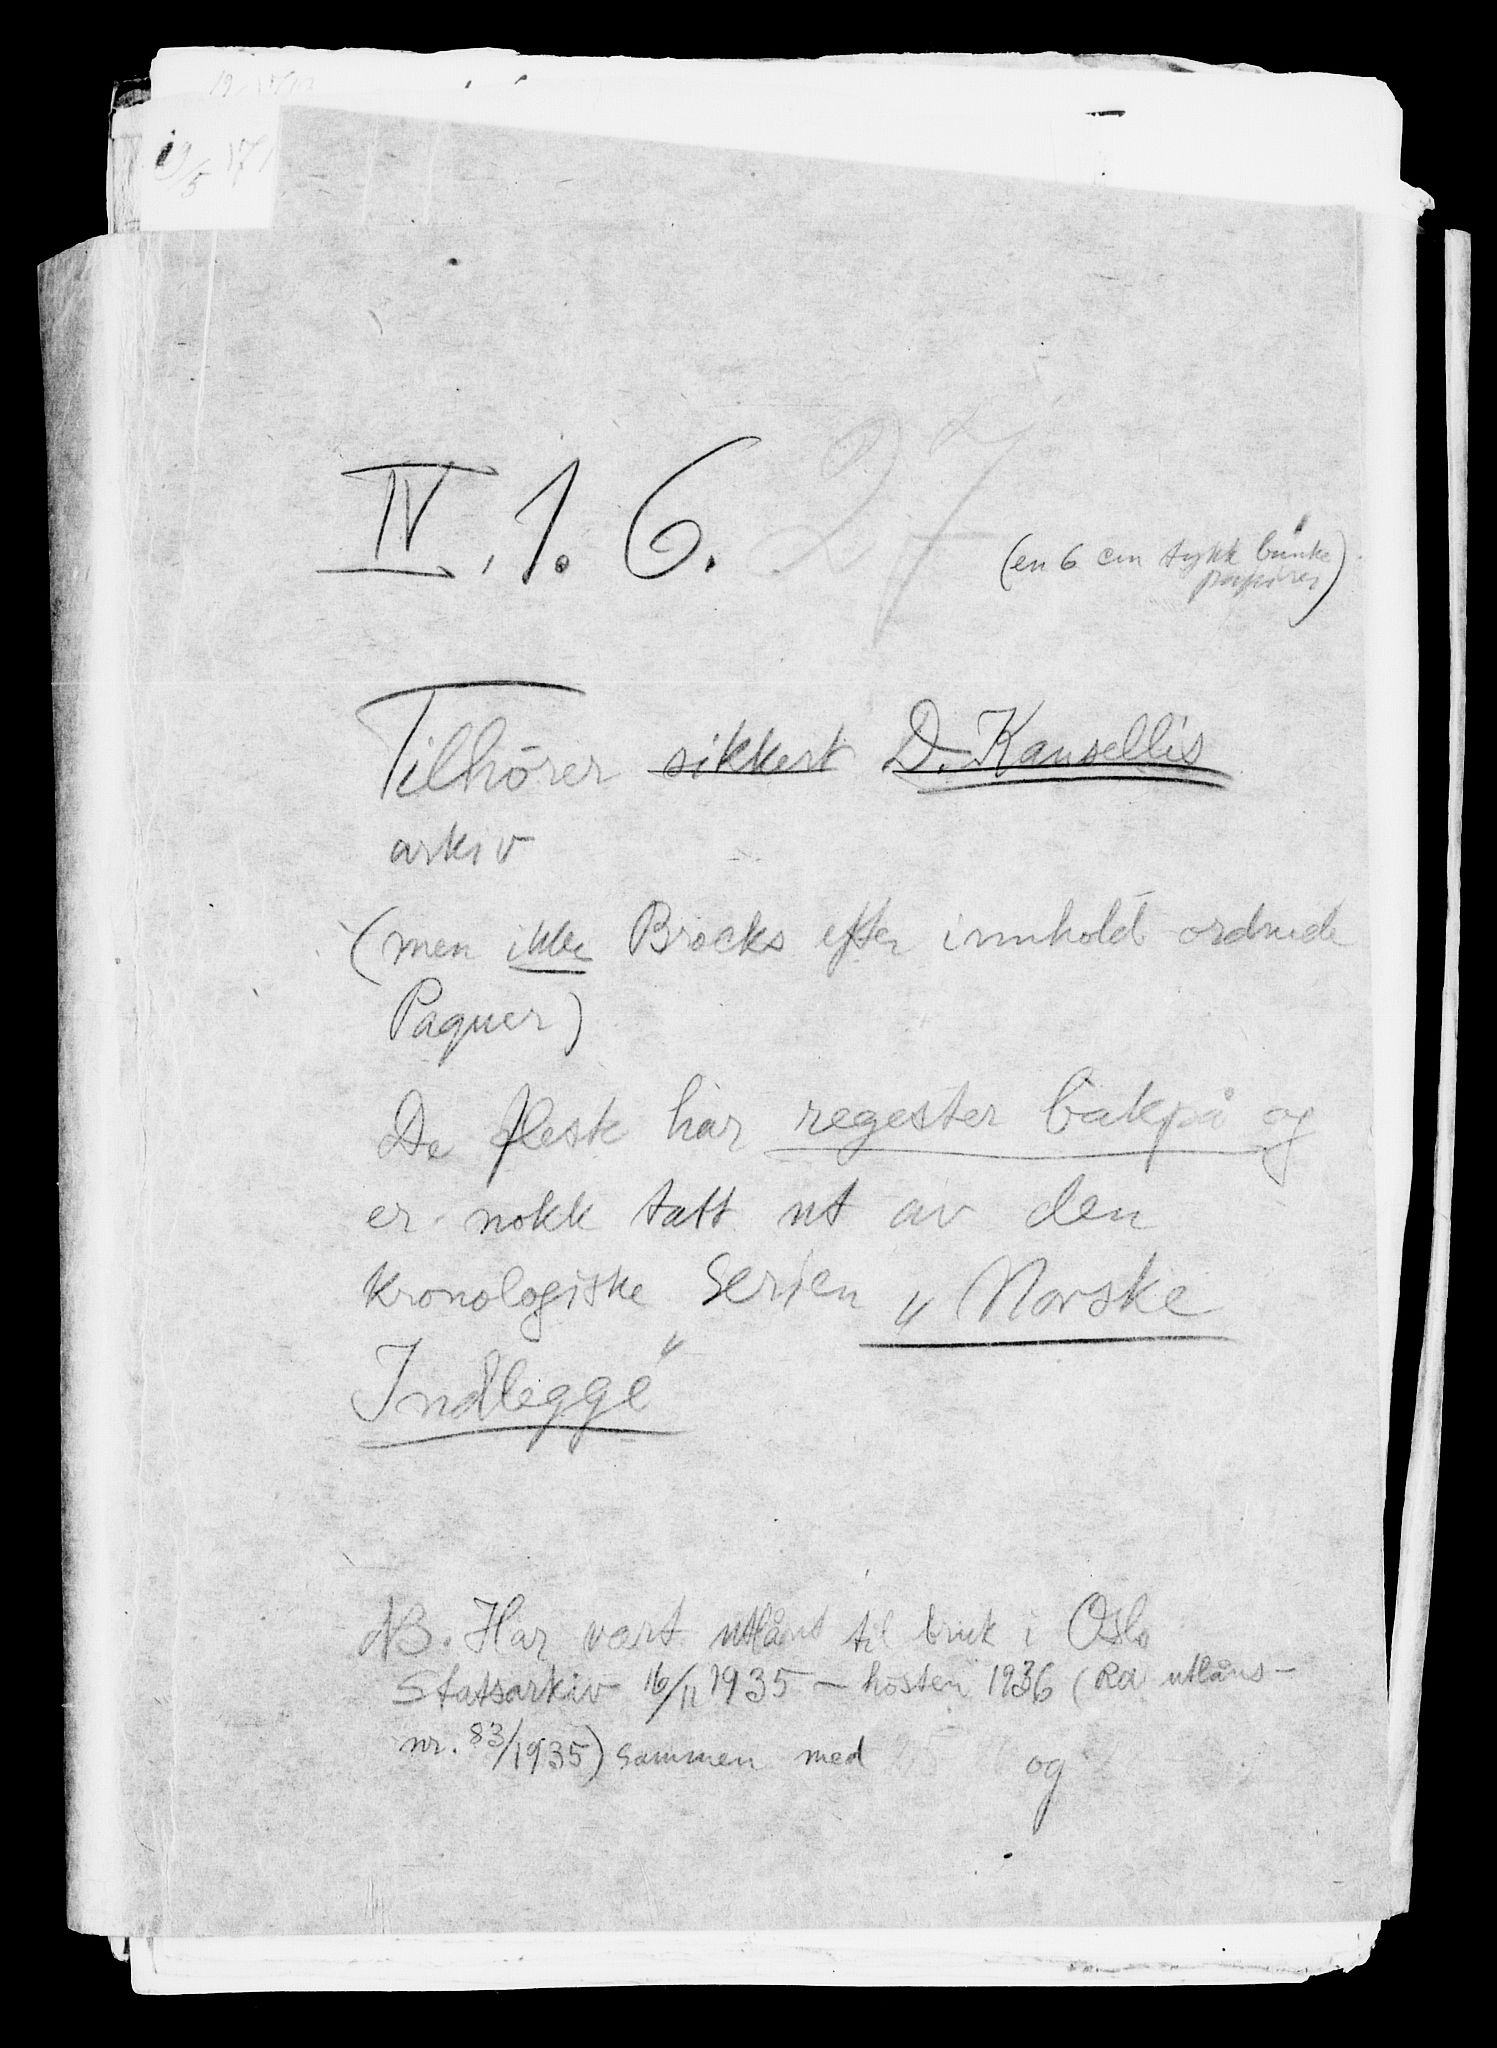 IV. 1. 6. 27
(en 6 cm tykk bunke
papirer)
Tilhører sikkert D. Kansellis
arkiv
(men ikke Brocks efter innhold ordnede
Paquer)
De fleste har regester bakpå og
er nokk tatt ut av den
kronologiske serien „Norske
Indlegge"
NB. Har vært utlånt til bruk i Oslo
Statsarkiv 16/11 1935 – høsten 1936 (RA utlåns-
nr. 83/1935) sammen med 25 og